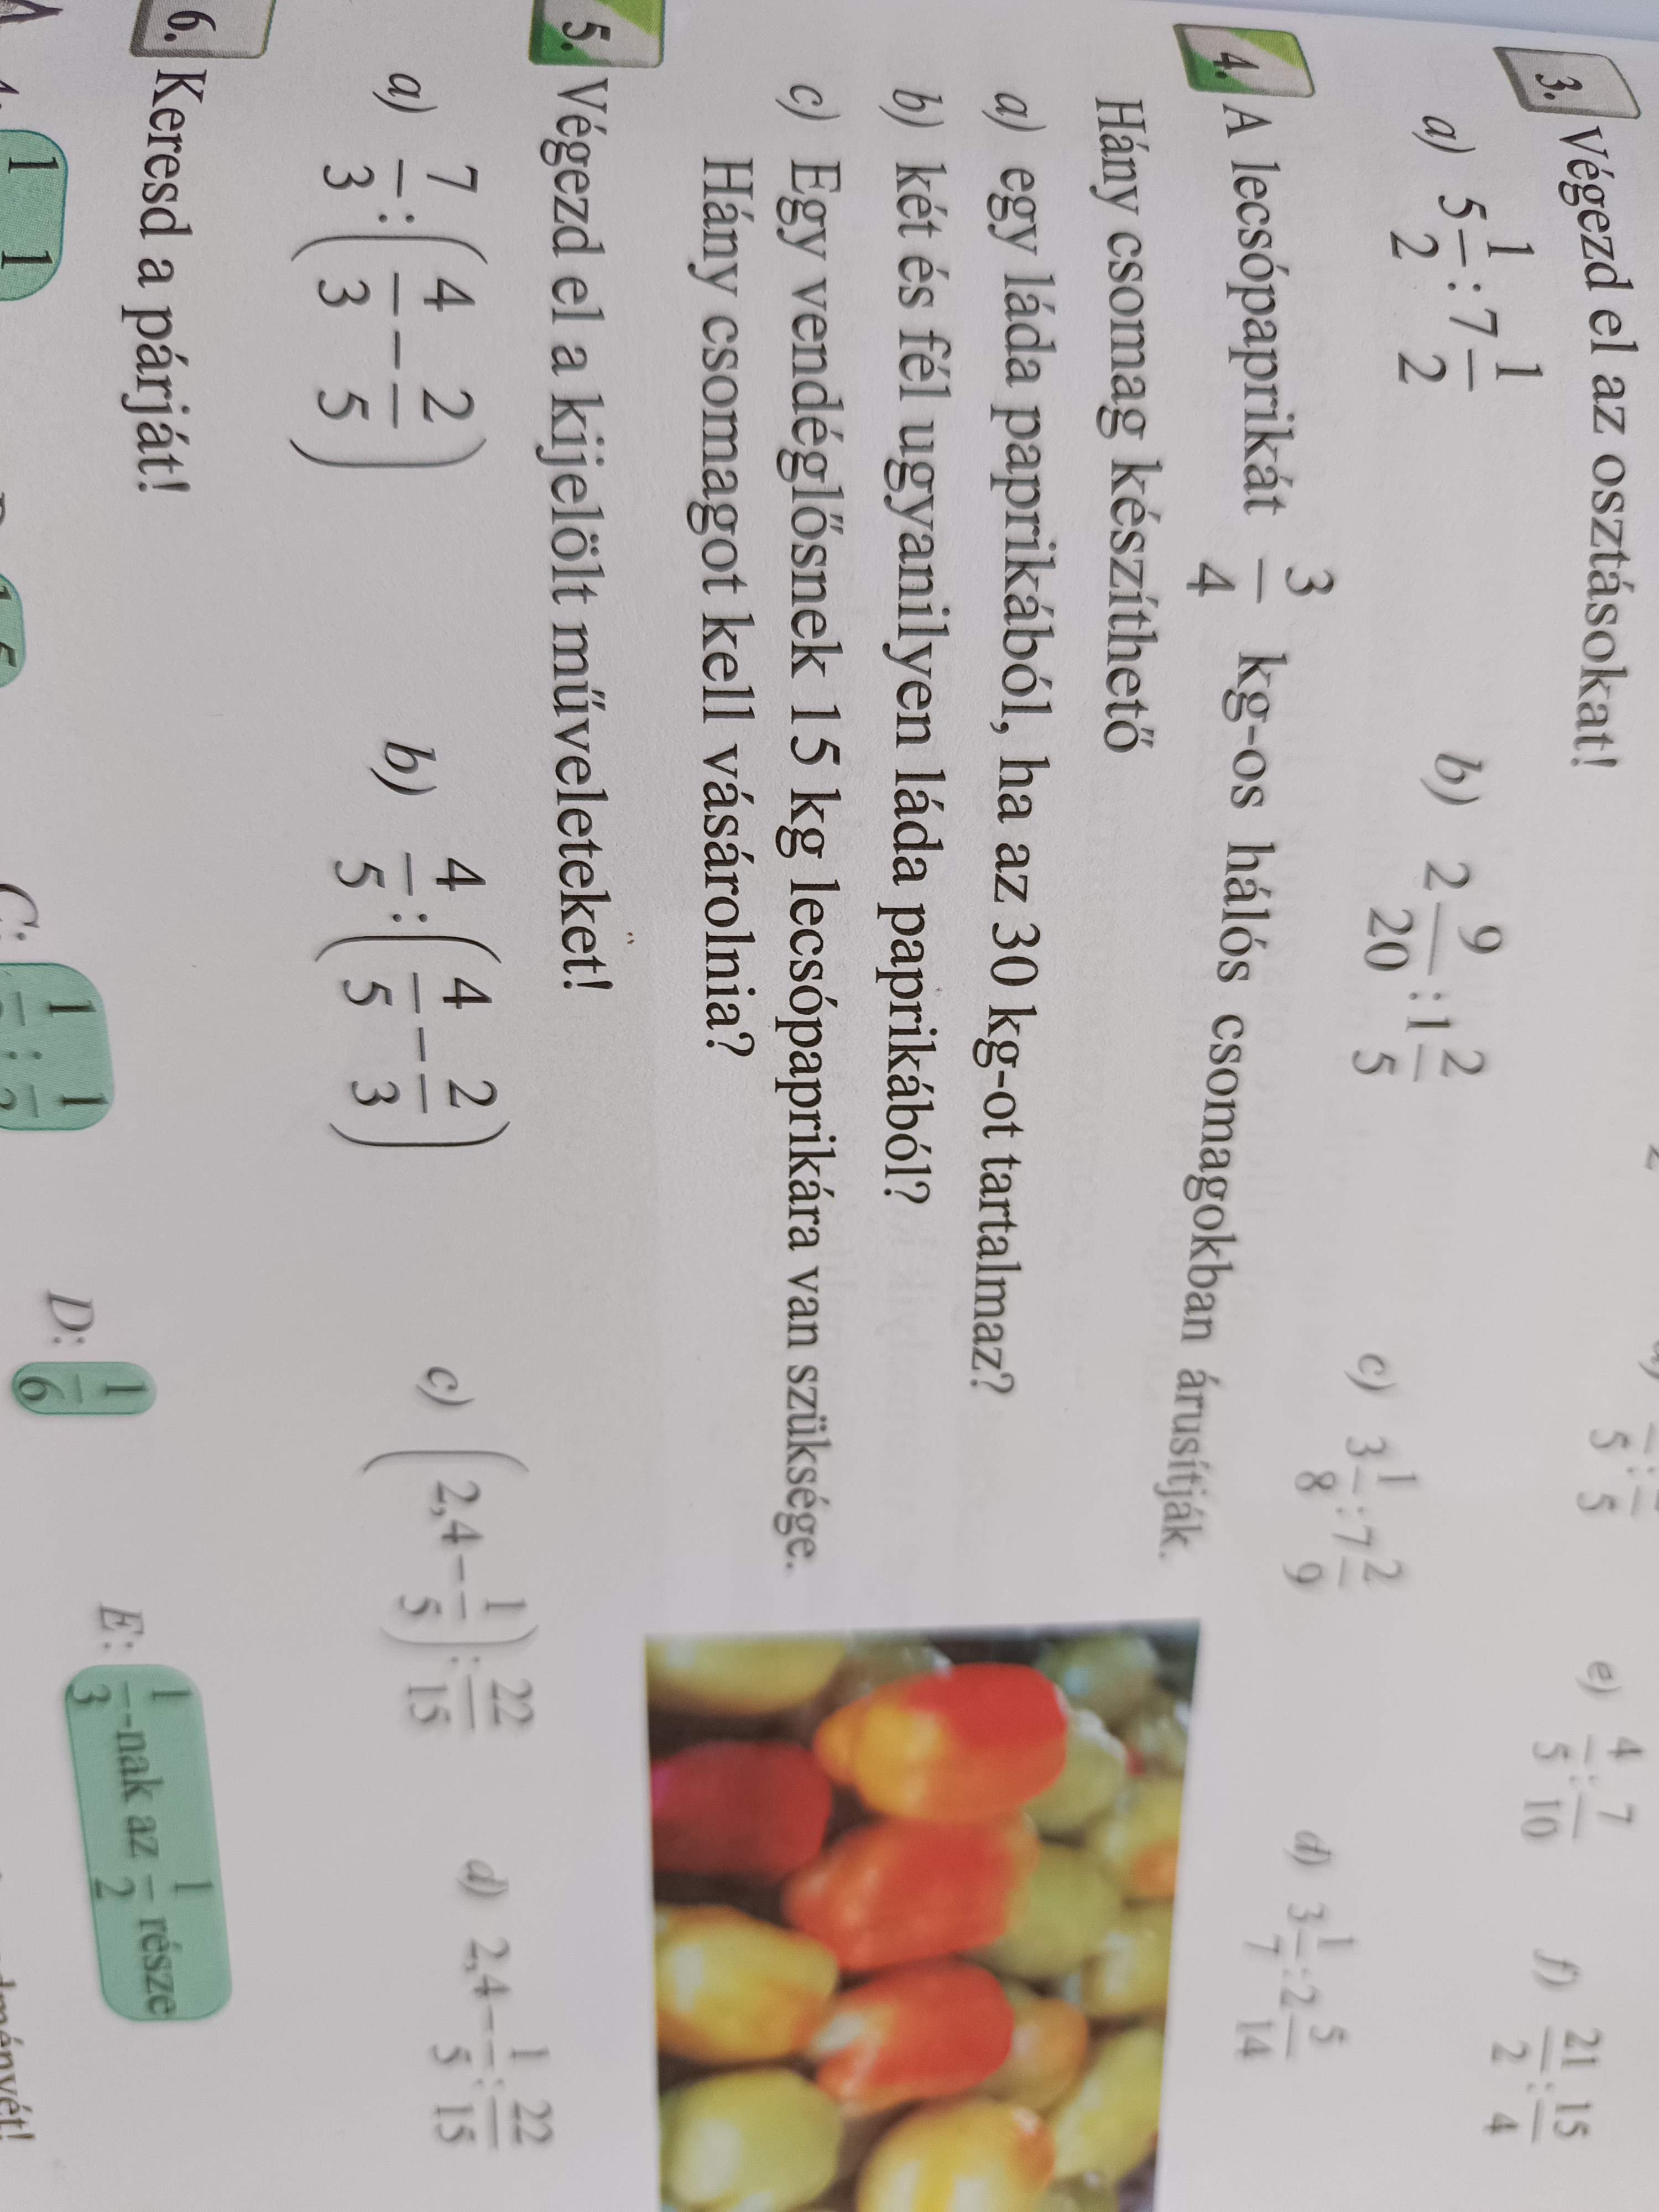 e) 4/5 : 7/10 f) 21/2 : 15/4
3. Végezd el az osztásokat!
a) 5 1/2 : 7 1/2 b) 2 9/20 : 1 2/5 c) 3 1/8 : 7 2/9 d) 3 1/7 : 2 5/14
4. A lecsópaprikát 3/4 kg-os hálós csomagokban árusítják.
Hány csomag készíthető
a) egy láda paprikából, ha az 30 kg-ot tartalmaz?
b) két és fél ugyanilyen láda paprikából?
c) Egy vendéglősnek 15 kg lecsópaprikára van szüksége.
Hány csomagot kell vásárolnia?
5. Végezd el a kijelölt műveleteket!
a) 7/3 : (4/3 − 2/5) b) 4/5 : (4/5 − 2/3) c) (2,4 − 1/5) : 22/15 d) 2,4 − 1/5 : 22/15
6. Keresd a párját!
C: D: 1/6 E: 1/3-nak az 1/2 része